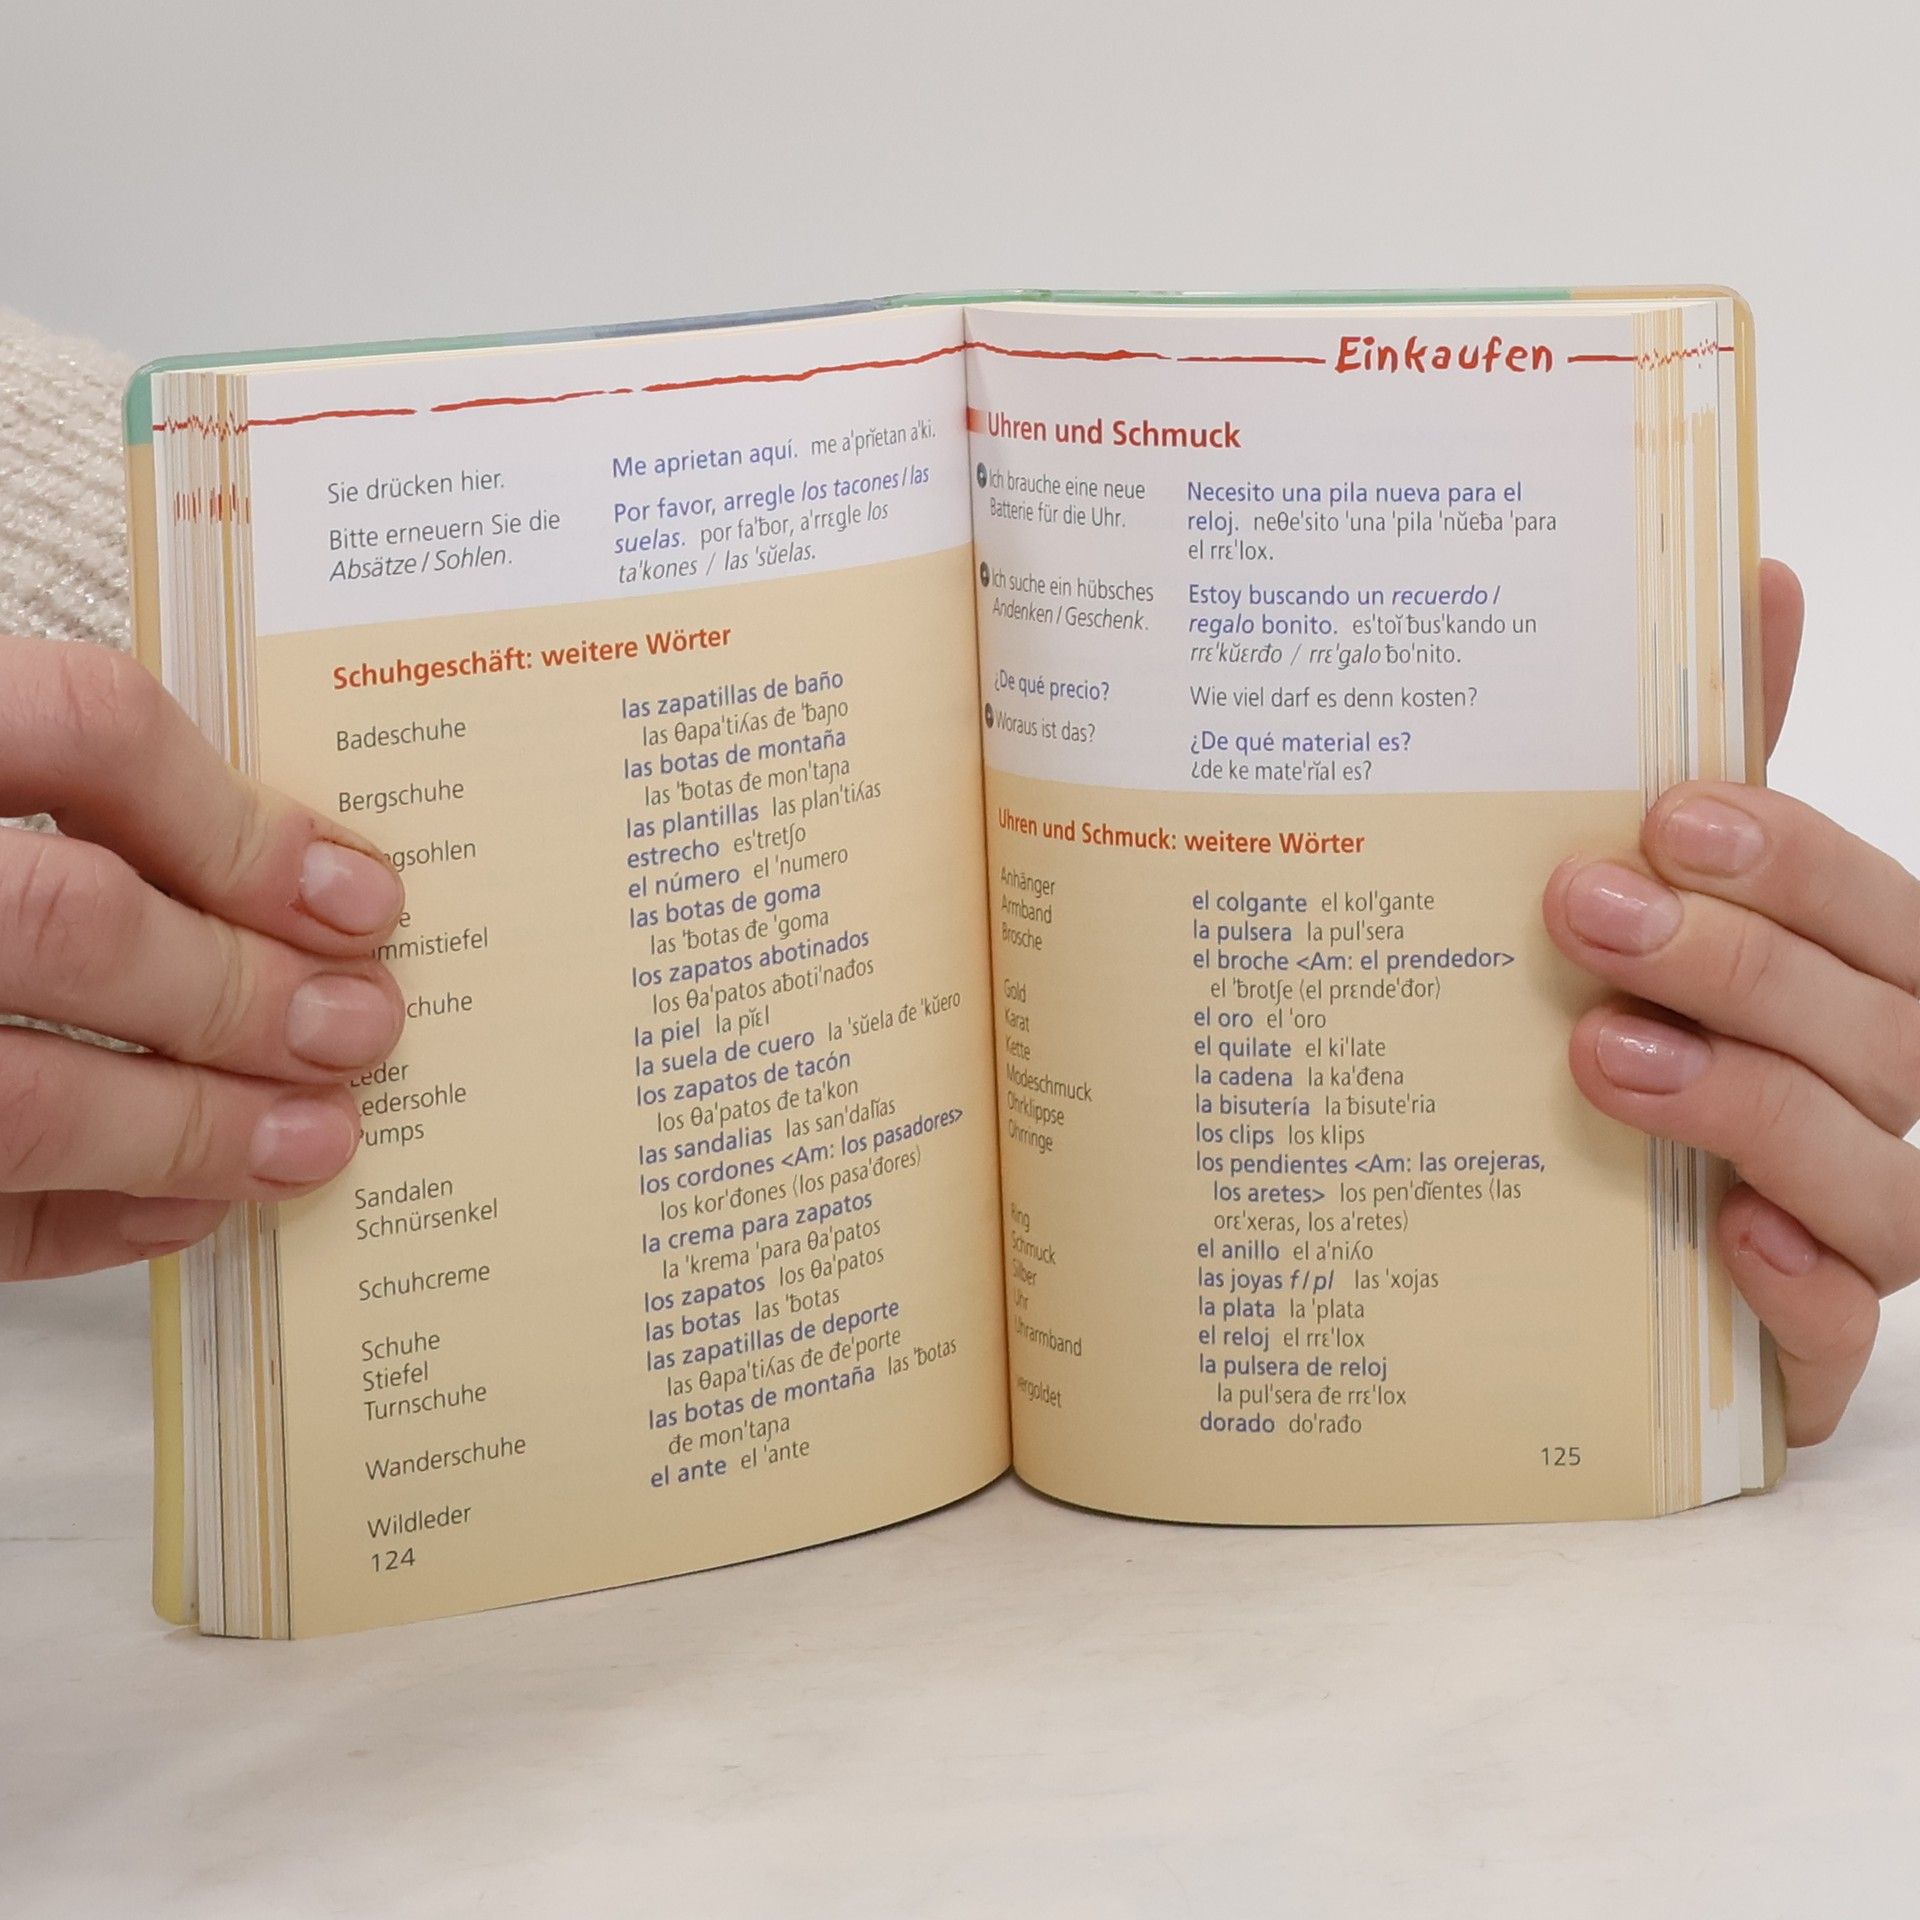 Sie drücken hier.
Me aprietan aquí. me a'prĭetan a'ki.
Bitte erneuern Sie die
Absätze / Sohlen.
Por favor, arregle los tacones / las
suelas. por fa'ƀor, a'rrɛgle los
ta'kones / las 'sŭelas.
Schuhgeschäft: weitere Wörter
Badeschuhe
Bergschuhe
Leder
Pumps
Sandalen
Schnürsenkel
Schuhcreme
Schuhe
Stiefel
Turnschuhe
Wanderschuhe
Wildleder
las zapatillas de baño
las θapa'tiʎas đe 'ƀaɲo
las botas de montaña
las 'ƀotas đe mon'taɲa
las plantillas las plan'tiʎas
estrecho es'tretʃo
el número el 'numero
las botas de goma
las 'ƀotas đe 'goma
los zapatos abotinados
los θa'patos aƀoti'nađos
la piel la pĭɛl
la suela de cuero la 'sŭela đe 'kŭero
los zapatos de tacón
los θa'patos đe ta'kon
las sandalias las san'dalĭas
los cordones <Am: los pasadores>
los kor'đones (los pasa'đores)
la crema para zapatos
la 'krema 'para θa'patos
los zapatos los θa'patos
las botas las 'ƀotas
las zapatillas de deporte
las θapa'tiʎas đe đe'porte
las botas de montaña las 'ƀotas
đe mon'taɲa
el ante el 'ante
124
Einkaufen
Uhren und Schmuck
Ich brauche eine neue
Batterie für die Uhr.
Necesito una pila nueva para el
reloj. neθe'sito 'una 'pila 'nŭeƀa 'para
el rrɛ'lox.
Ich suche ein hübsches
Andenken / Geschenk.
Estoy buscando un recuerdo /
regalo bonito. es'toĭ ƀus'kando un
rrɛ'kŭɛrđo / rrɛ'galo ƀo'nito.
¿De qué precio?
Wie viel darf es denn kosten?
Woraus ist das?
¿De qué material es?
¿de ke mate'rĭal es?
Uhren und Schmuck: weitere Wörter
Anhänger
Armband
Brosche
Gold
Karat
Kette
Modeschmuck
Ohrklippse
Ohrringe
Ring
Schmuck
Silber
Uhr
Uhrarmband
vergoldet
el colgante el kol'gante
la pulsera la pul'sera
el broche <Am: el prendedor>
el 'ƀrotʃe (el prɛnde'đor)
el oro el 'oro
el quilate el ki'late
la cadena la ka'đena
la bisutería la ƀisute'ria
los clips los klips
los pendientes <Am: las orejeras,
los aretes> los pen'dĭentes (las
orɛ'xeras, los a'retes)
el anillo el a'niʎo
las joyas f / pl las 'xojas
la plata la 'plata
el reloj el rrɛ'lox
la pulsera de reloj
la pul'sera đe rrɛ'lox
dorado do'rađo
125